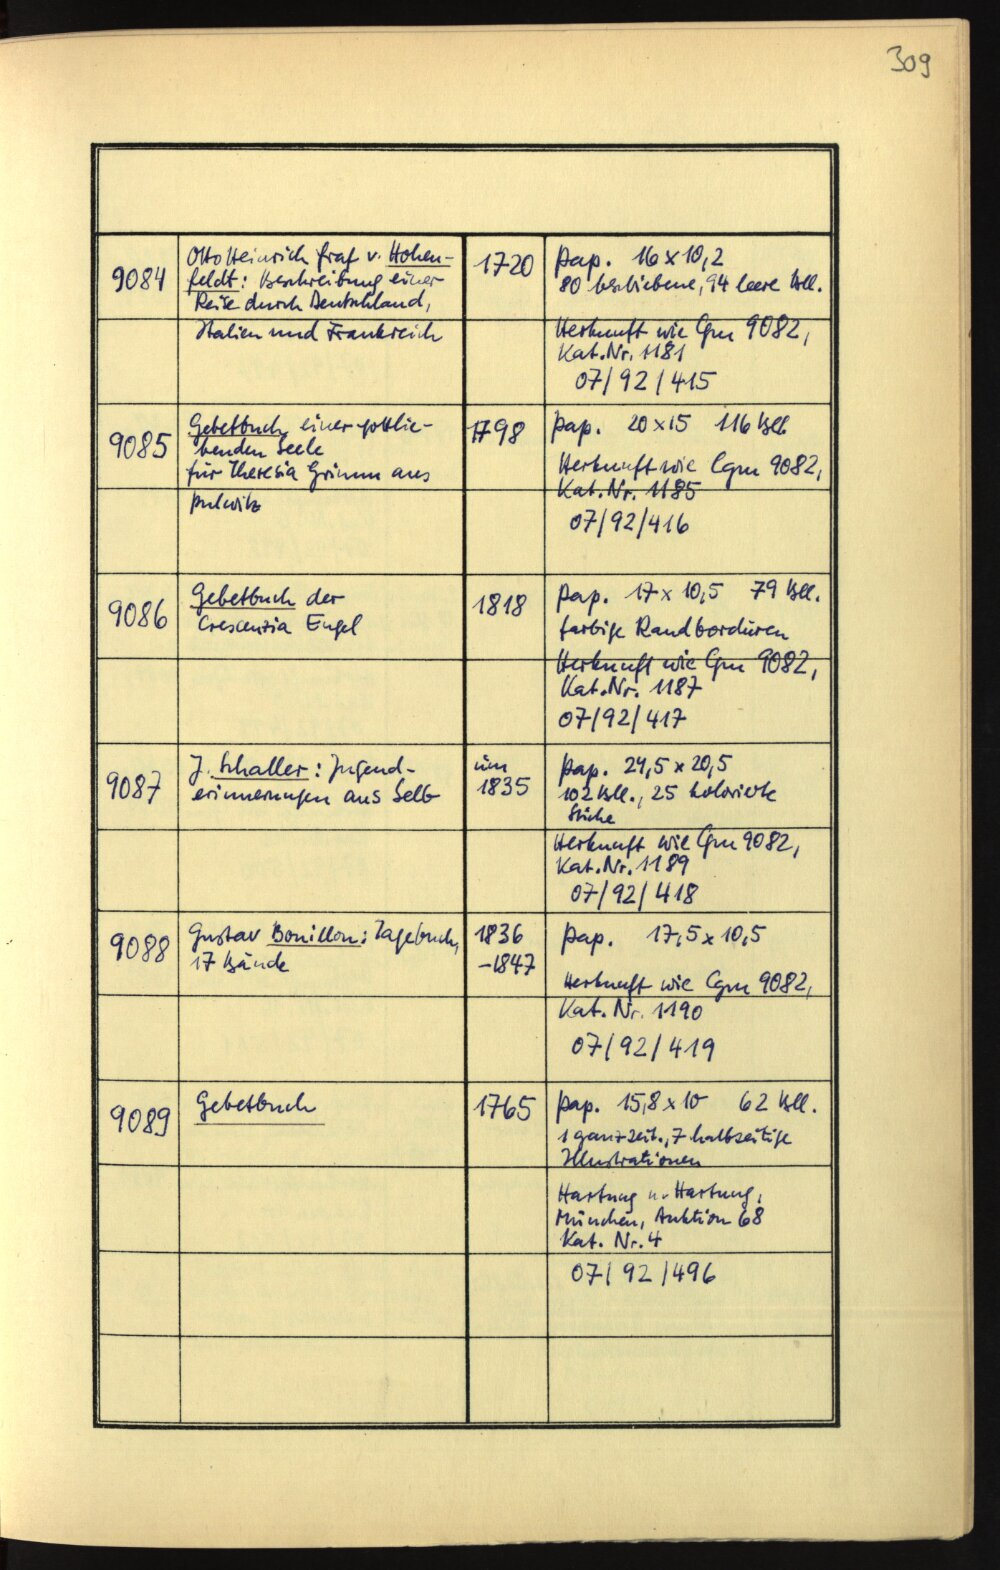 309
9084
Otto Heinrich Graf v. Hohen-
feldt: Beschreibung einer
Reise durch Deutschland,
Italien und Frankreich
1720
Pap. 16 x 10,2
80 beschriebene, 94 leere Bll.
Herkunft wie Cgm 9082,
Kat.Nr. 1181
07/92/415
9085
Gebetbuch einer gottlie-
benden Seele
für Theresia Grimm aus
1798
Pap. 20 x 15 116 Bll.
Herkunft wie Cgm 9082,
Kat.Nr. 1185
07/92/416
9086
Gebetbuch der
Crescenzia Engel
1818
Pap. 17 x 10,5 79 Bll.
farbige Randbordüren
Herkunft wie Cgm 9082,
Kat.Nr. 1187
07/92/417
9087
J. Schaller: Jugend-
erinnerungen aus Selb
um
1835
Pap. 24,5 x 20,5
102 Bll., 25 kolorierte
Stiche
Herkunft wie Cgm 9082,
Kat.Nr. 1189
07/92/418
9088
Gustav Bouillon: Tagebuch,
17 Bände
1836
-1847
Pap. 17,5 x 10,5
Herkunft wie Cgm 9082,
Kat. Nr. 1190
07/92/419
9089
Gebetbuch
1765
Pap. 15,8 x 10 62 Bll.
1 ganzseit., 7 halbseitige
Illustrationen
Hartung u. Hartung,
München, Auktion 68
Kat. Nr. 4
07/92/496